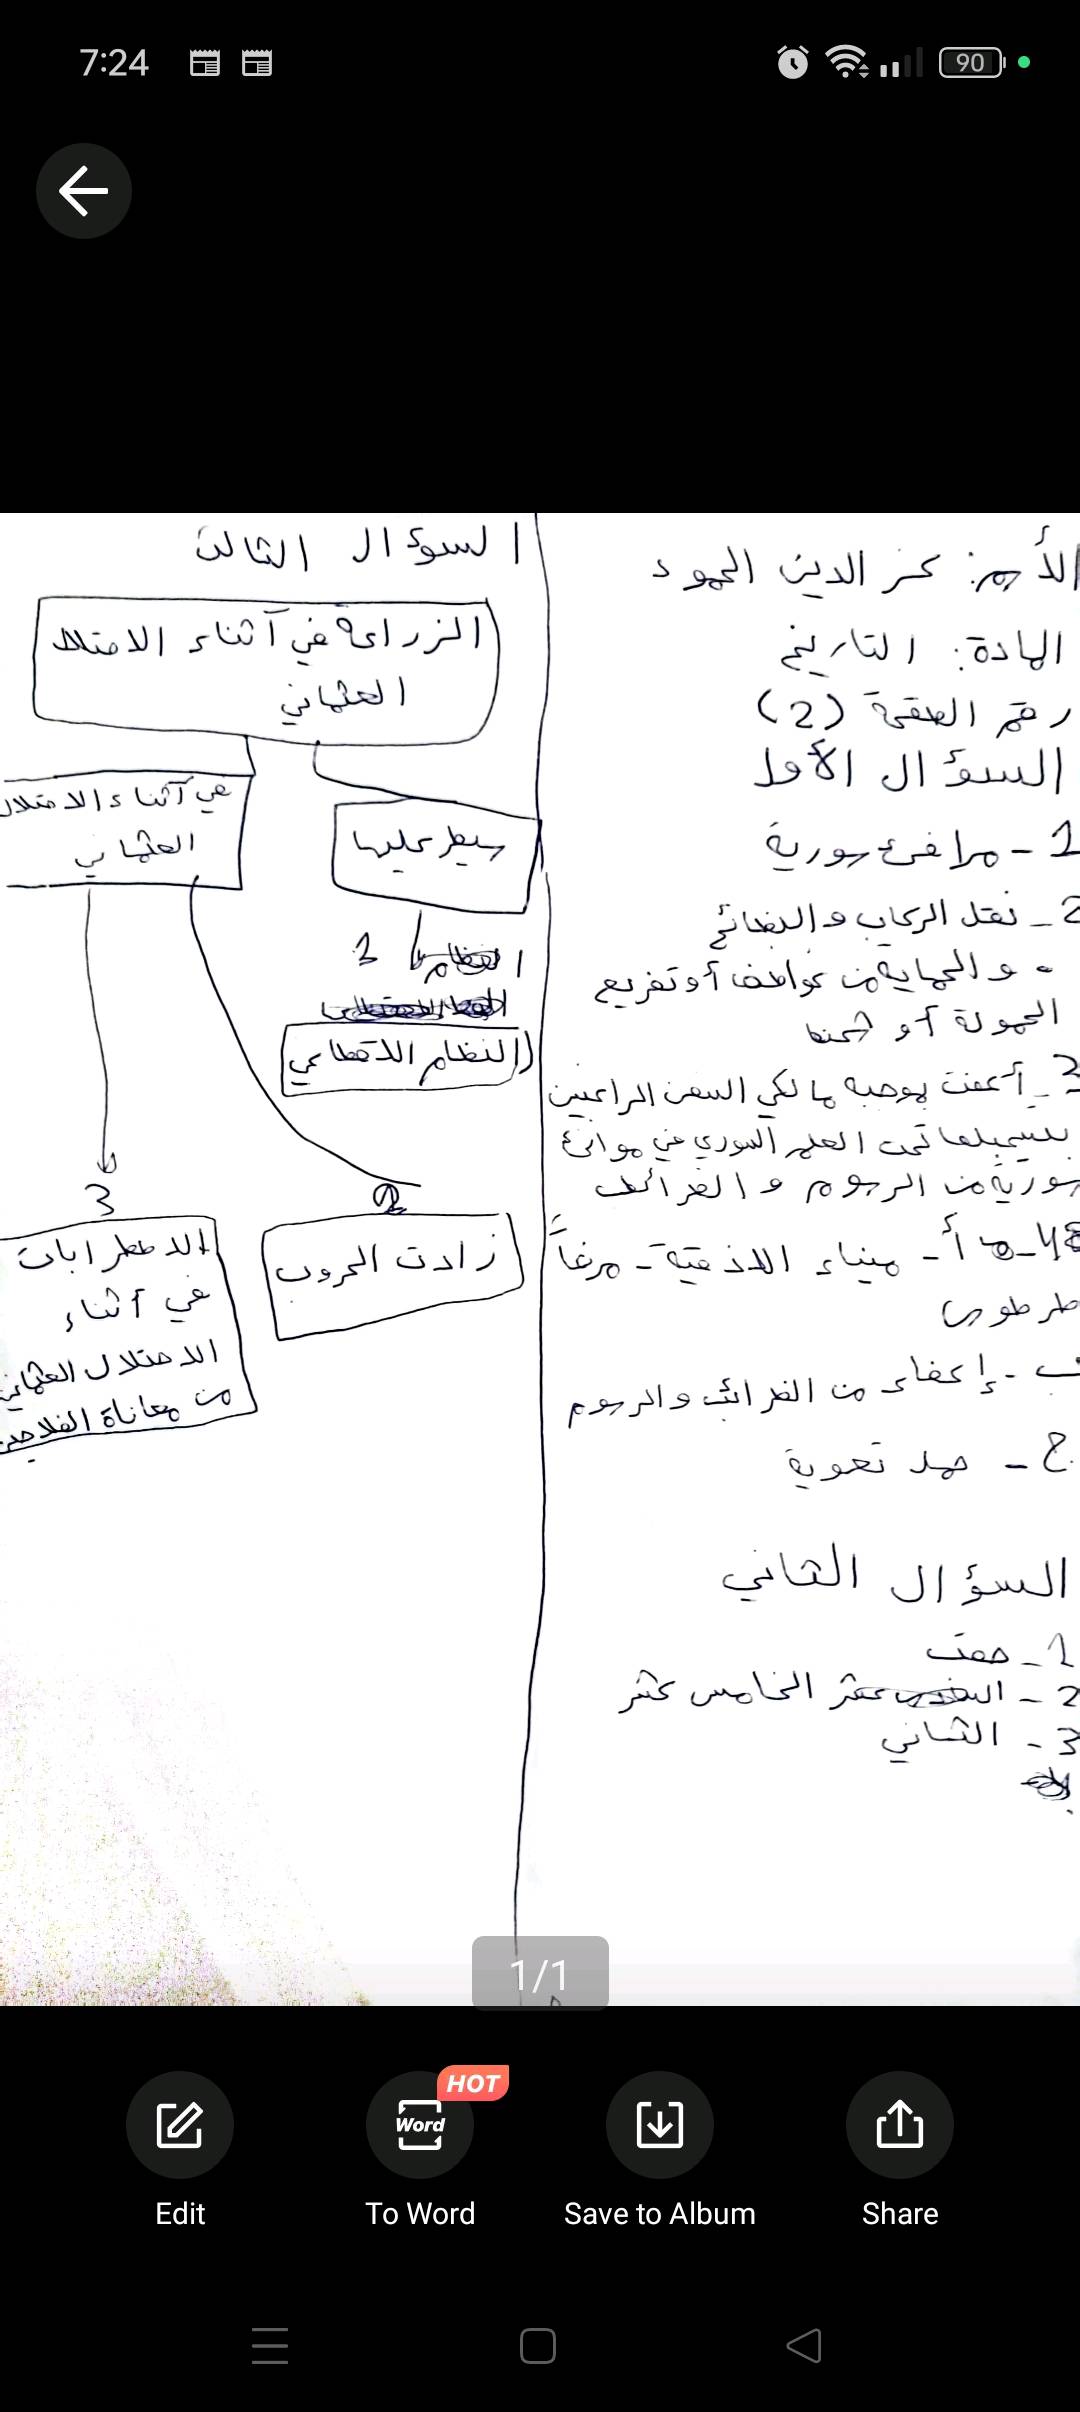 7:24
90
الأسم: عز الدين الحمود
المادة: التاريخ
رقم الصفحة (2)
السؤال الأول
1 - مرافئ سورية
2 - نقل الركاب والبضائع
والحماية من عواصف أو تفريغ
الحمولة أو شحنها
3 - أعفت بموجبه مالكي السفن الراغبين
بتسجيلها تحت العلم السوري في موانئ
سورية من الرسوم والضرائب
أ - ميناء اللاذقية - مرفأ
طرطوس
ب - إعفاء من الضرائب والرسوم
ج -
السؤال الثاني
1 -
2 - الخامس عشر
3 - الثاني
السؤال الثالث
الزراعة في آثناء الاحتلال
العثماني
سيطر عليها
في آثناء الاحتلال
العثماني
1
(النظام الاقطاعي)
2
زادت الحروب
3
الاضطرابات
في آثناء
الاحتلال العثماني
من معاناة الفلاحين
1/1
Edit
HOT
Word
To Word
Save to Album
Share